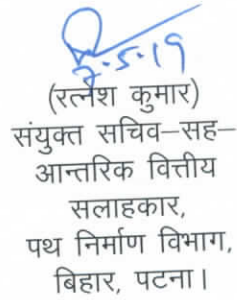 7.5.19
(रत्नेश कुमार)
संयुक्त सचिव–सह–
आन्तरिक वित्तीय
सलाहकार,
पथ निर्माण विभाग,
बिहार, पटना।